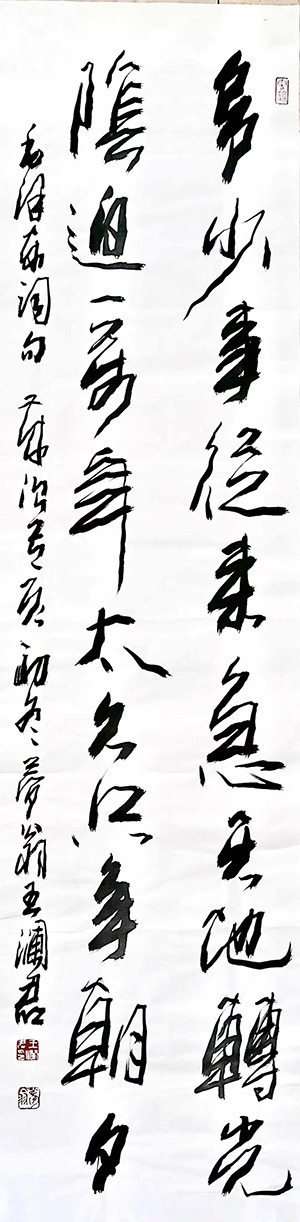 多少事從来急天地轉光
陰迫一萬年太久只争朝夕
毛澤東詞句 初冬夢翁王瀾君